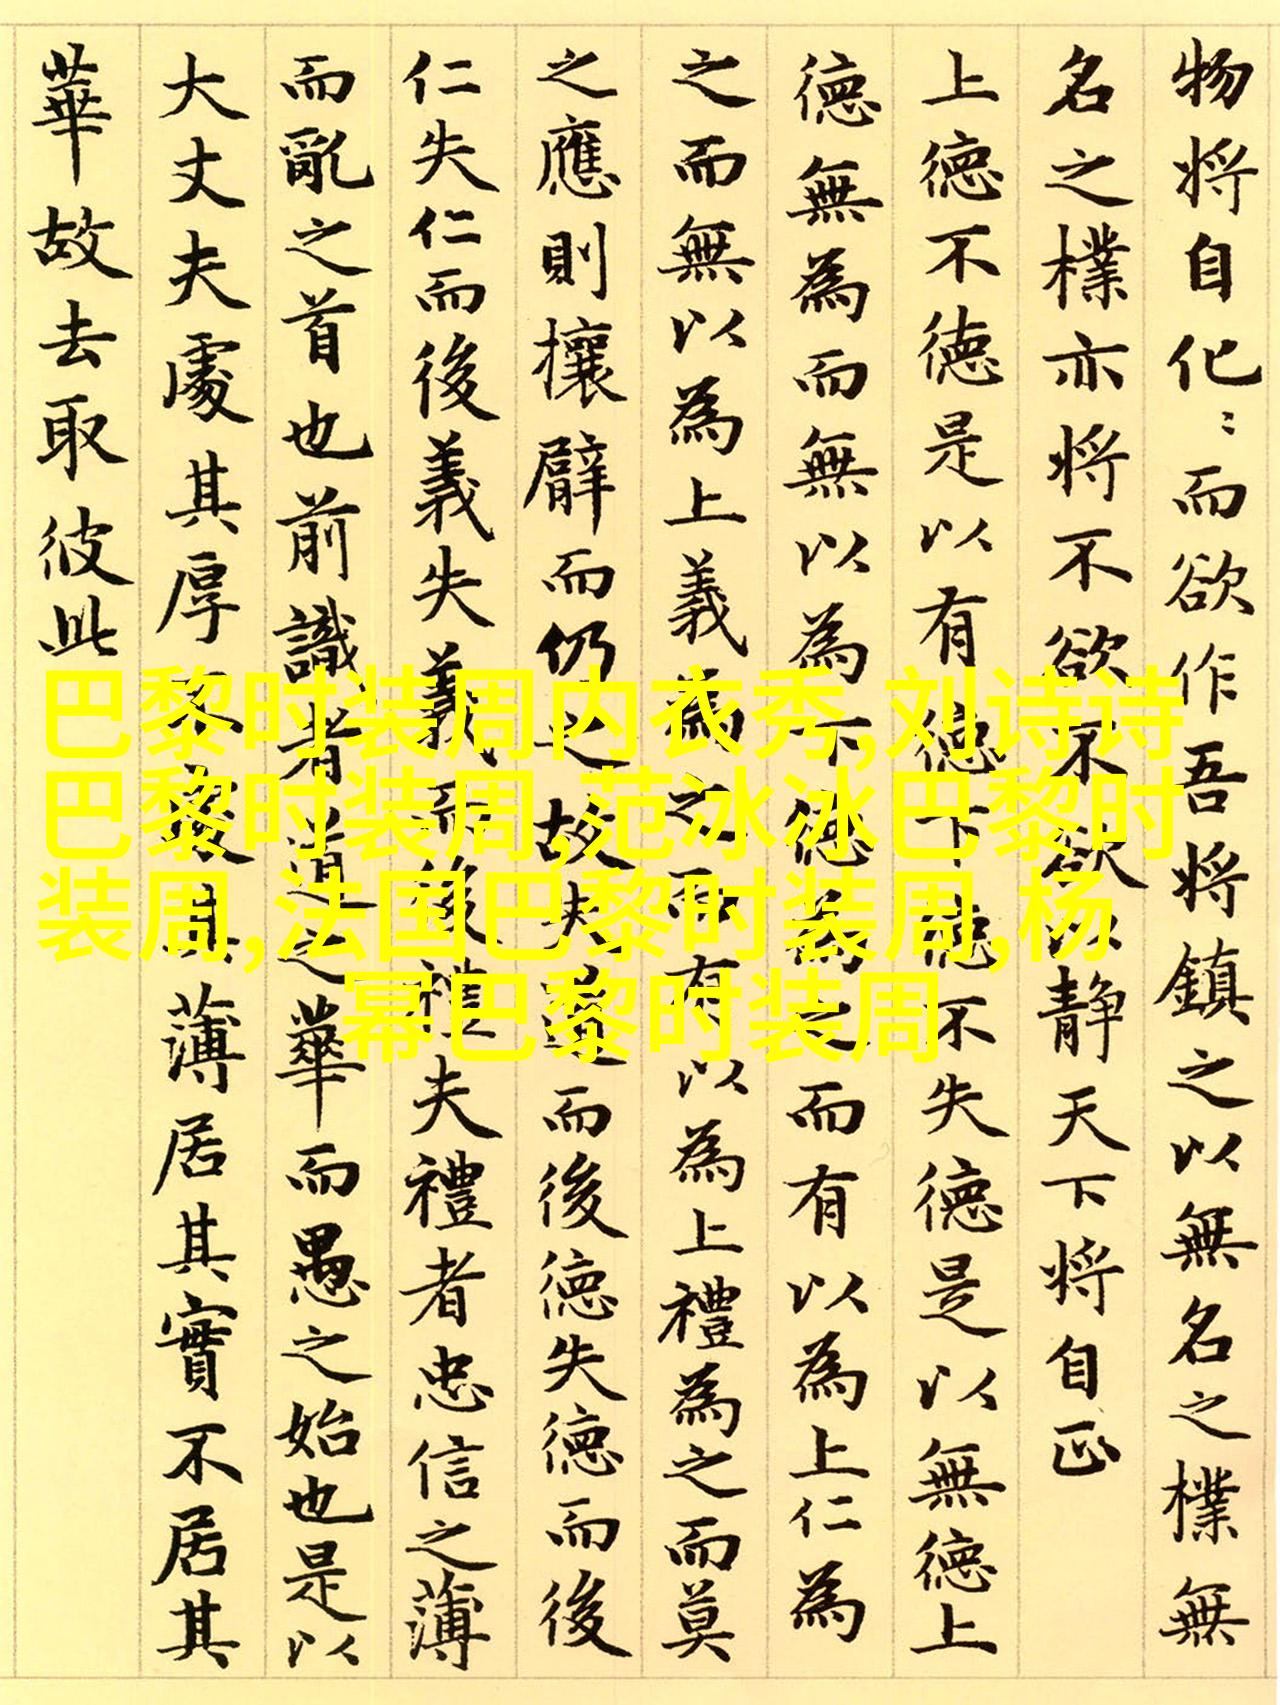 物将自化〻而欲作吾将鎮之以無名之樸無
名之樸亦将不欲不欲以静天下将自正
上徳不徳是以有徳下徳不失徳是以無徳上
徳無為而無以為下徳為之而有以為上仁為
之而無以為上義為之而有以為上禮為之而莫
之應則攘臂而仍之故失道而後徳失徳而後
仁失仁而後義失義而後禮夫禮者忠信之薄
而亂之首也前識者道之華而愚之始也是以
大丈夫處其厚不處其薄居其實不居其
華故去取彼此
巴黎时装周内衣秀,刘诗诗
巴黎时装周,范冰冰巴黎时
装周,法国巴黎时装周,杨
幂巴黎时装周